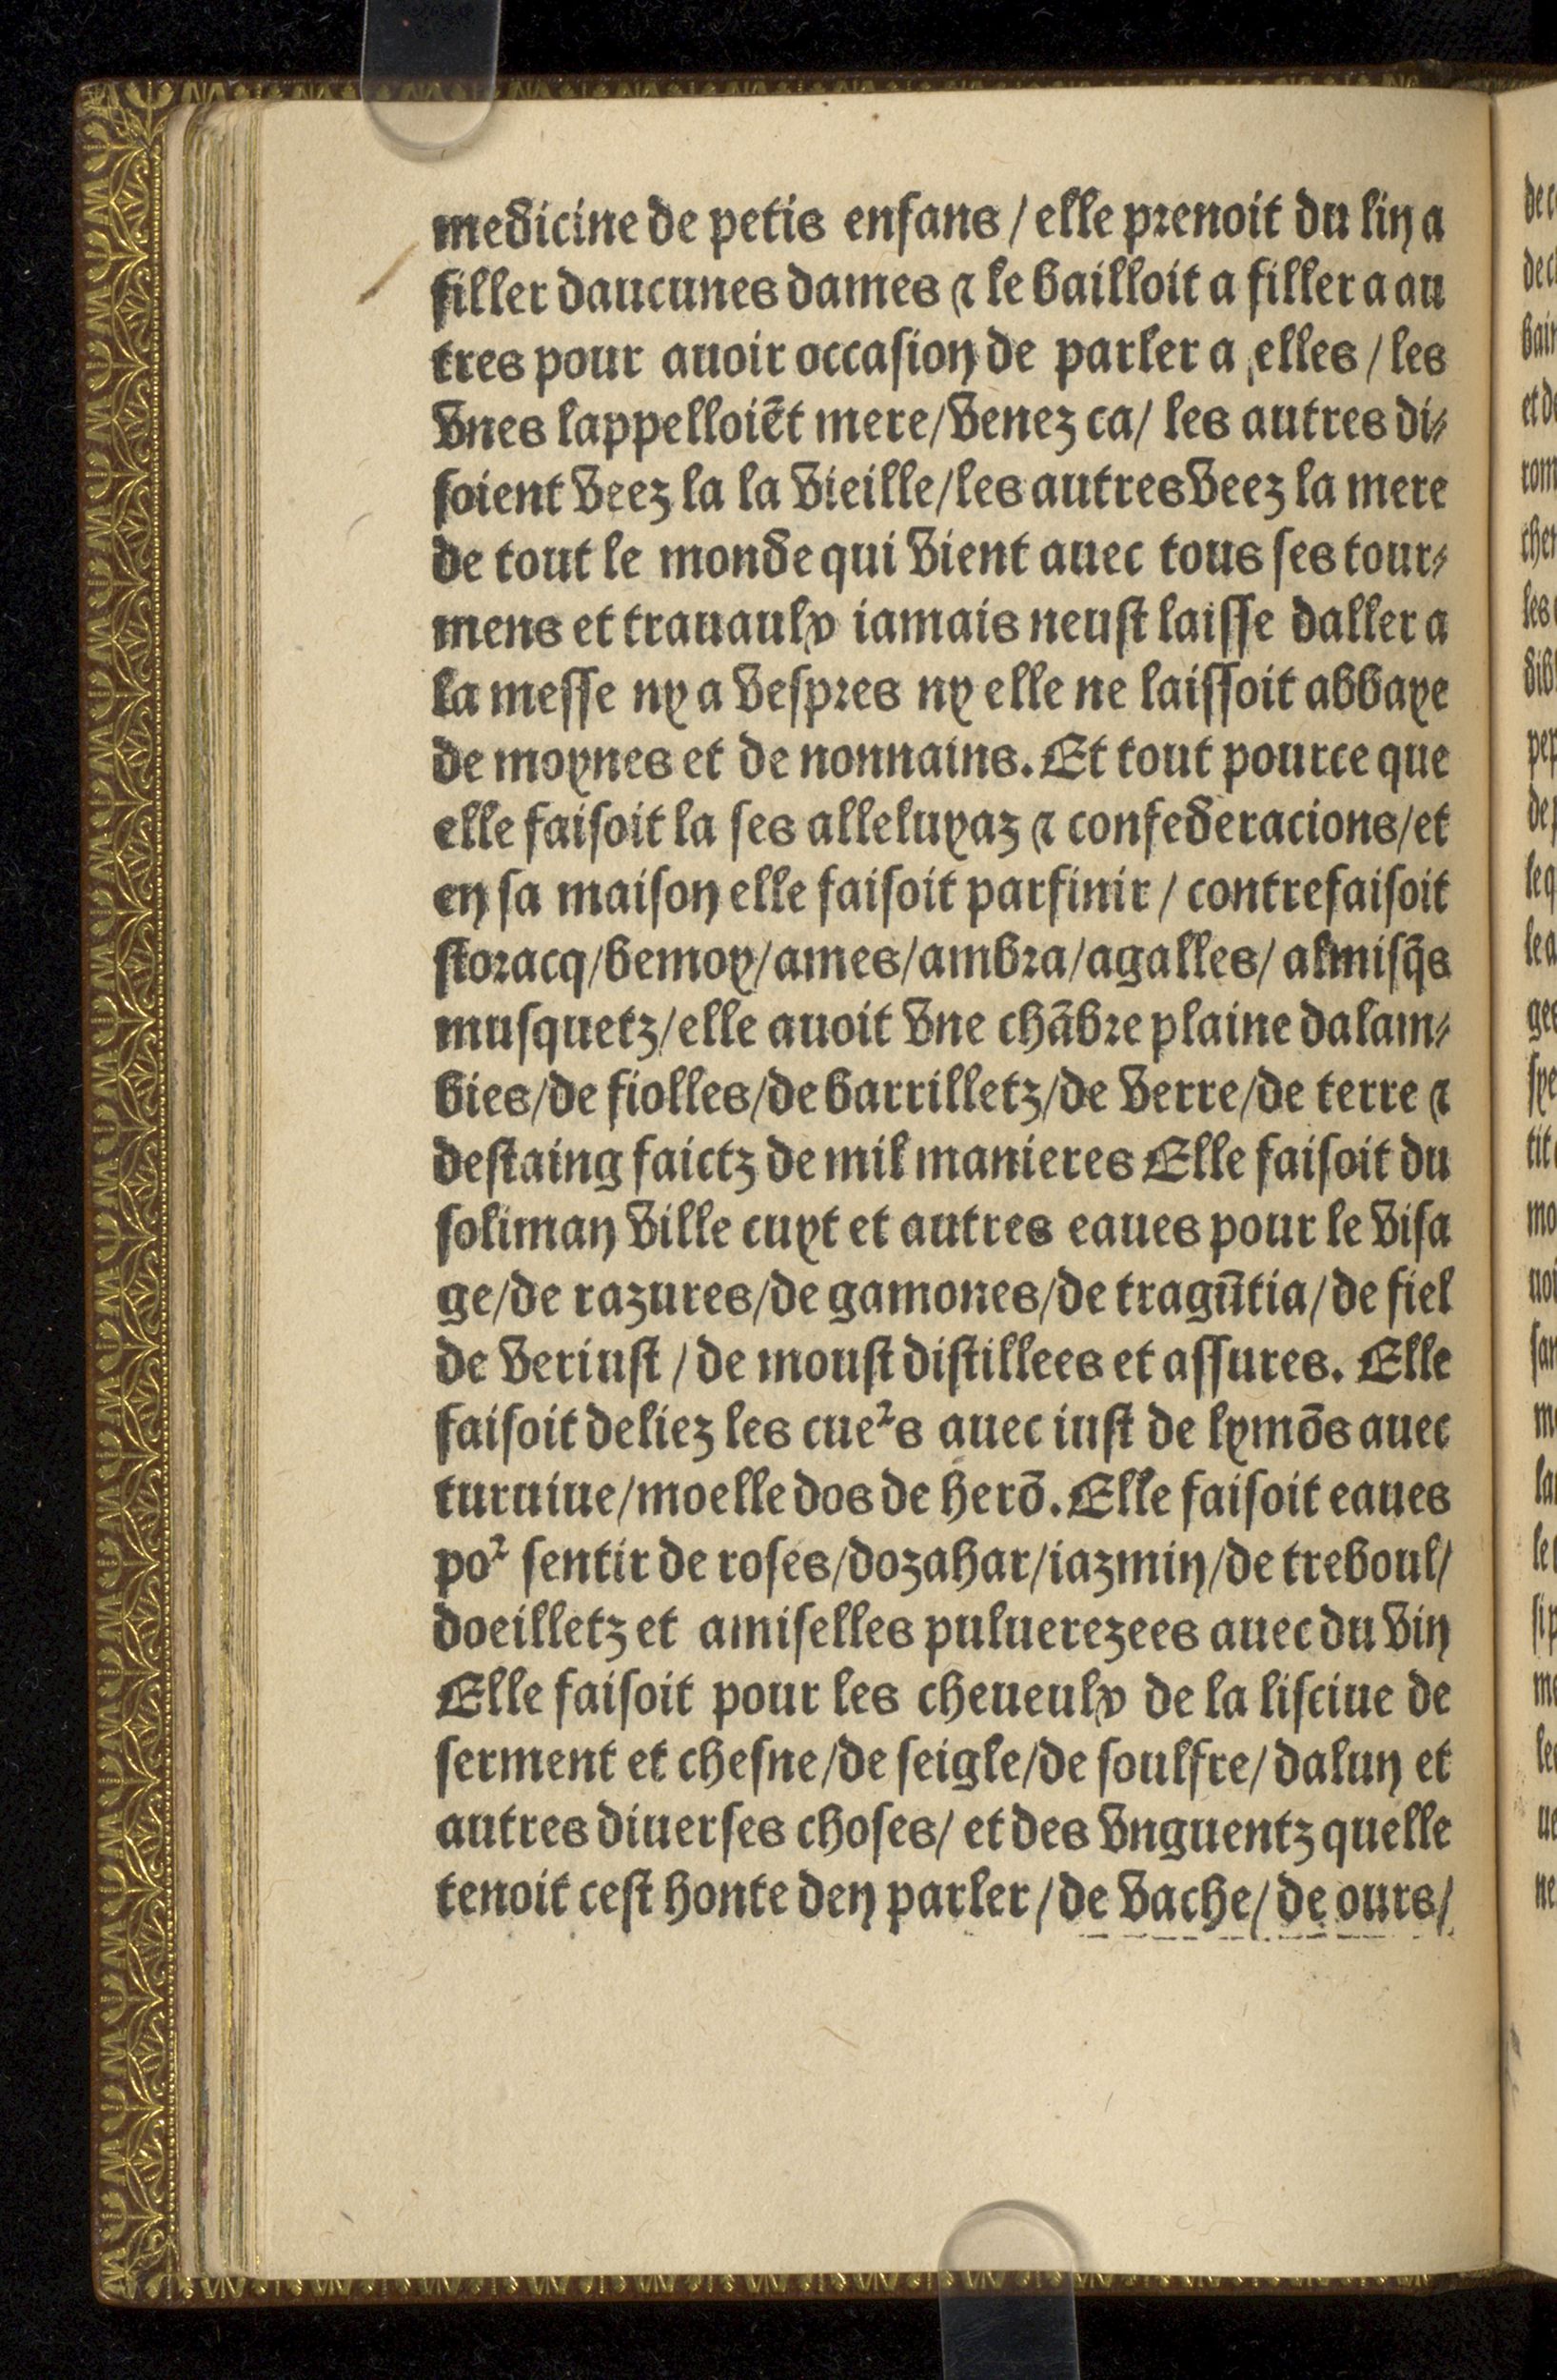 medicine de petis enfans / elle prenoit du lin a
filler daucunes dames ⁊ le bailloit a filler a au
tres pour auoir occasion de parler a elles / les
vnes lappelloiẽt mere / venez ca / les autres di⸗
soient veez la la vieille / les autres veez la mere
de tout le monde qui vient auec tous ses tour⸗
mens et trauaulx iamais neust laisse daller a
la messe ny a vespres ny elle ne laissoit abbaye
de moynes et de nonnains. Et tout pource que
elle faisoit la ses alleluyaz ⁊ confederacions / et
en sa maison elle faisoit parfinir / contrefaisoit
storacq / bemoy / ames / ambra / agalles / almisq̃s
musquetz / elle auoit vne chãbre plaine dalam⸗
bies / de fiolles / de barrilletz / de verre / de terre ⁊
destaing faictz de mil manieres Elle faisoit du
soliman ville cuyt et autres eaues pour le visa
ge / de razures / de gamones / de tragũtia / de fiel
de veriust / de moust distillees et assures. Elle
faisoit deliez les cueꝛs auec iust de lymõs auec
turuiue / moelle dos de herõ. Elle faisoit eaues
poꝛ sentir de roses / dozahar / iazmin / de treboul /
doeilletz et amiselles puluerezees auec du vin
Elle faisoit pour les cheueulx de la lisciue de
serment et chesne / de seigle / de soulfre / dalun et
autres diuerses choses / et des vnguentz quelle
tenoit cest honte den parler / de vache / de ours /